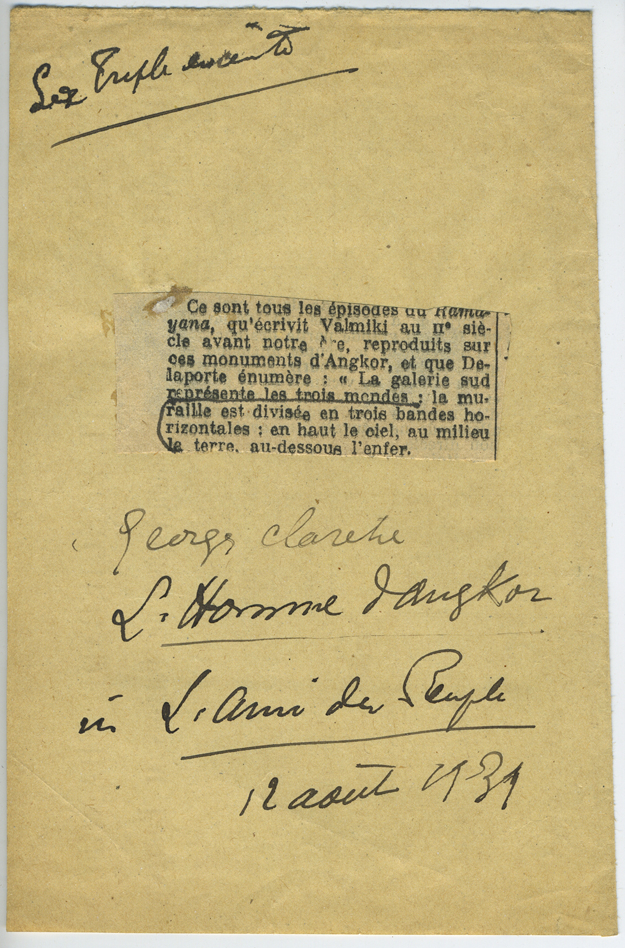 Triple enceinte
Ce sont tous les épisodes du Rama-
yana, qu'écrivit Valmiki au IIe siè-
cle avant notre ère, reproduits sur
ces monuments d'Angkor, et que De-
laporte énumère : « La galerie sud
représente les trois mondes ; la mu-
raille est divisée en trois bandes ho-
rizontales : en haut le ciel, au milieu
la terre, au-dessous l'enfer.
Georges Claretie
L'Homme d'Angkor
in L'Ami du Peuple
12 août 1931